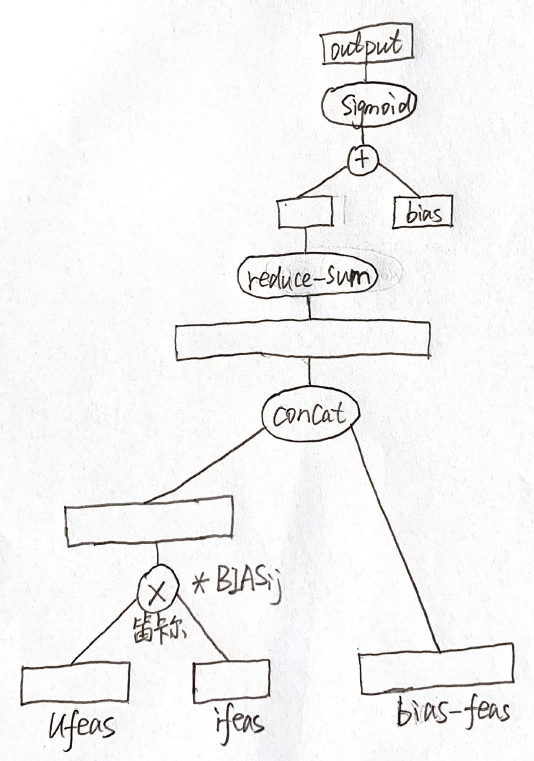 output
Sigmoid
+
bias
reduce-sum
concat
× * BIASij
笛卡尔
ufeas
ifeas
bias-feas